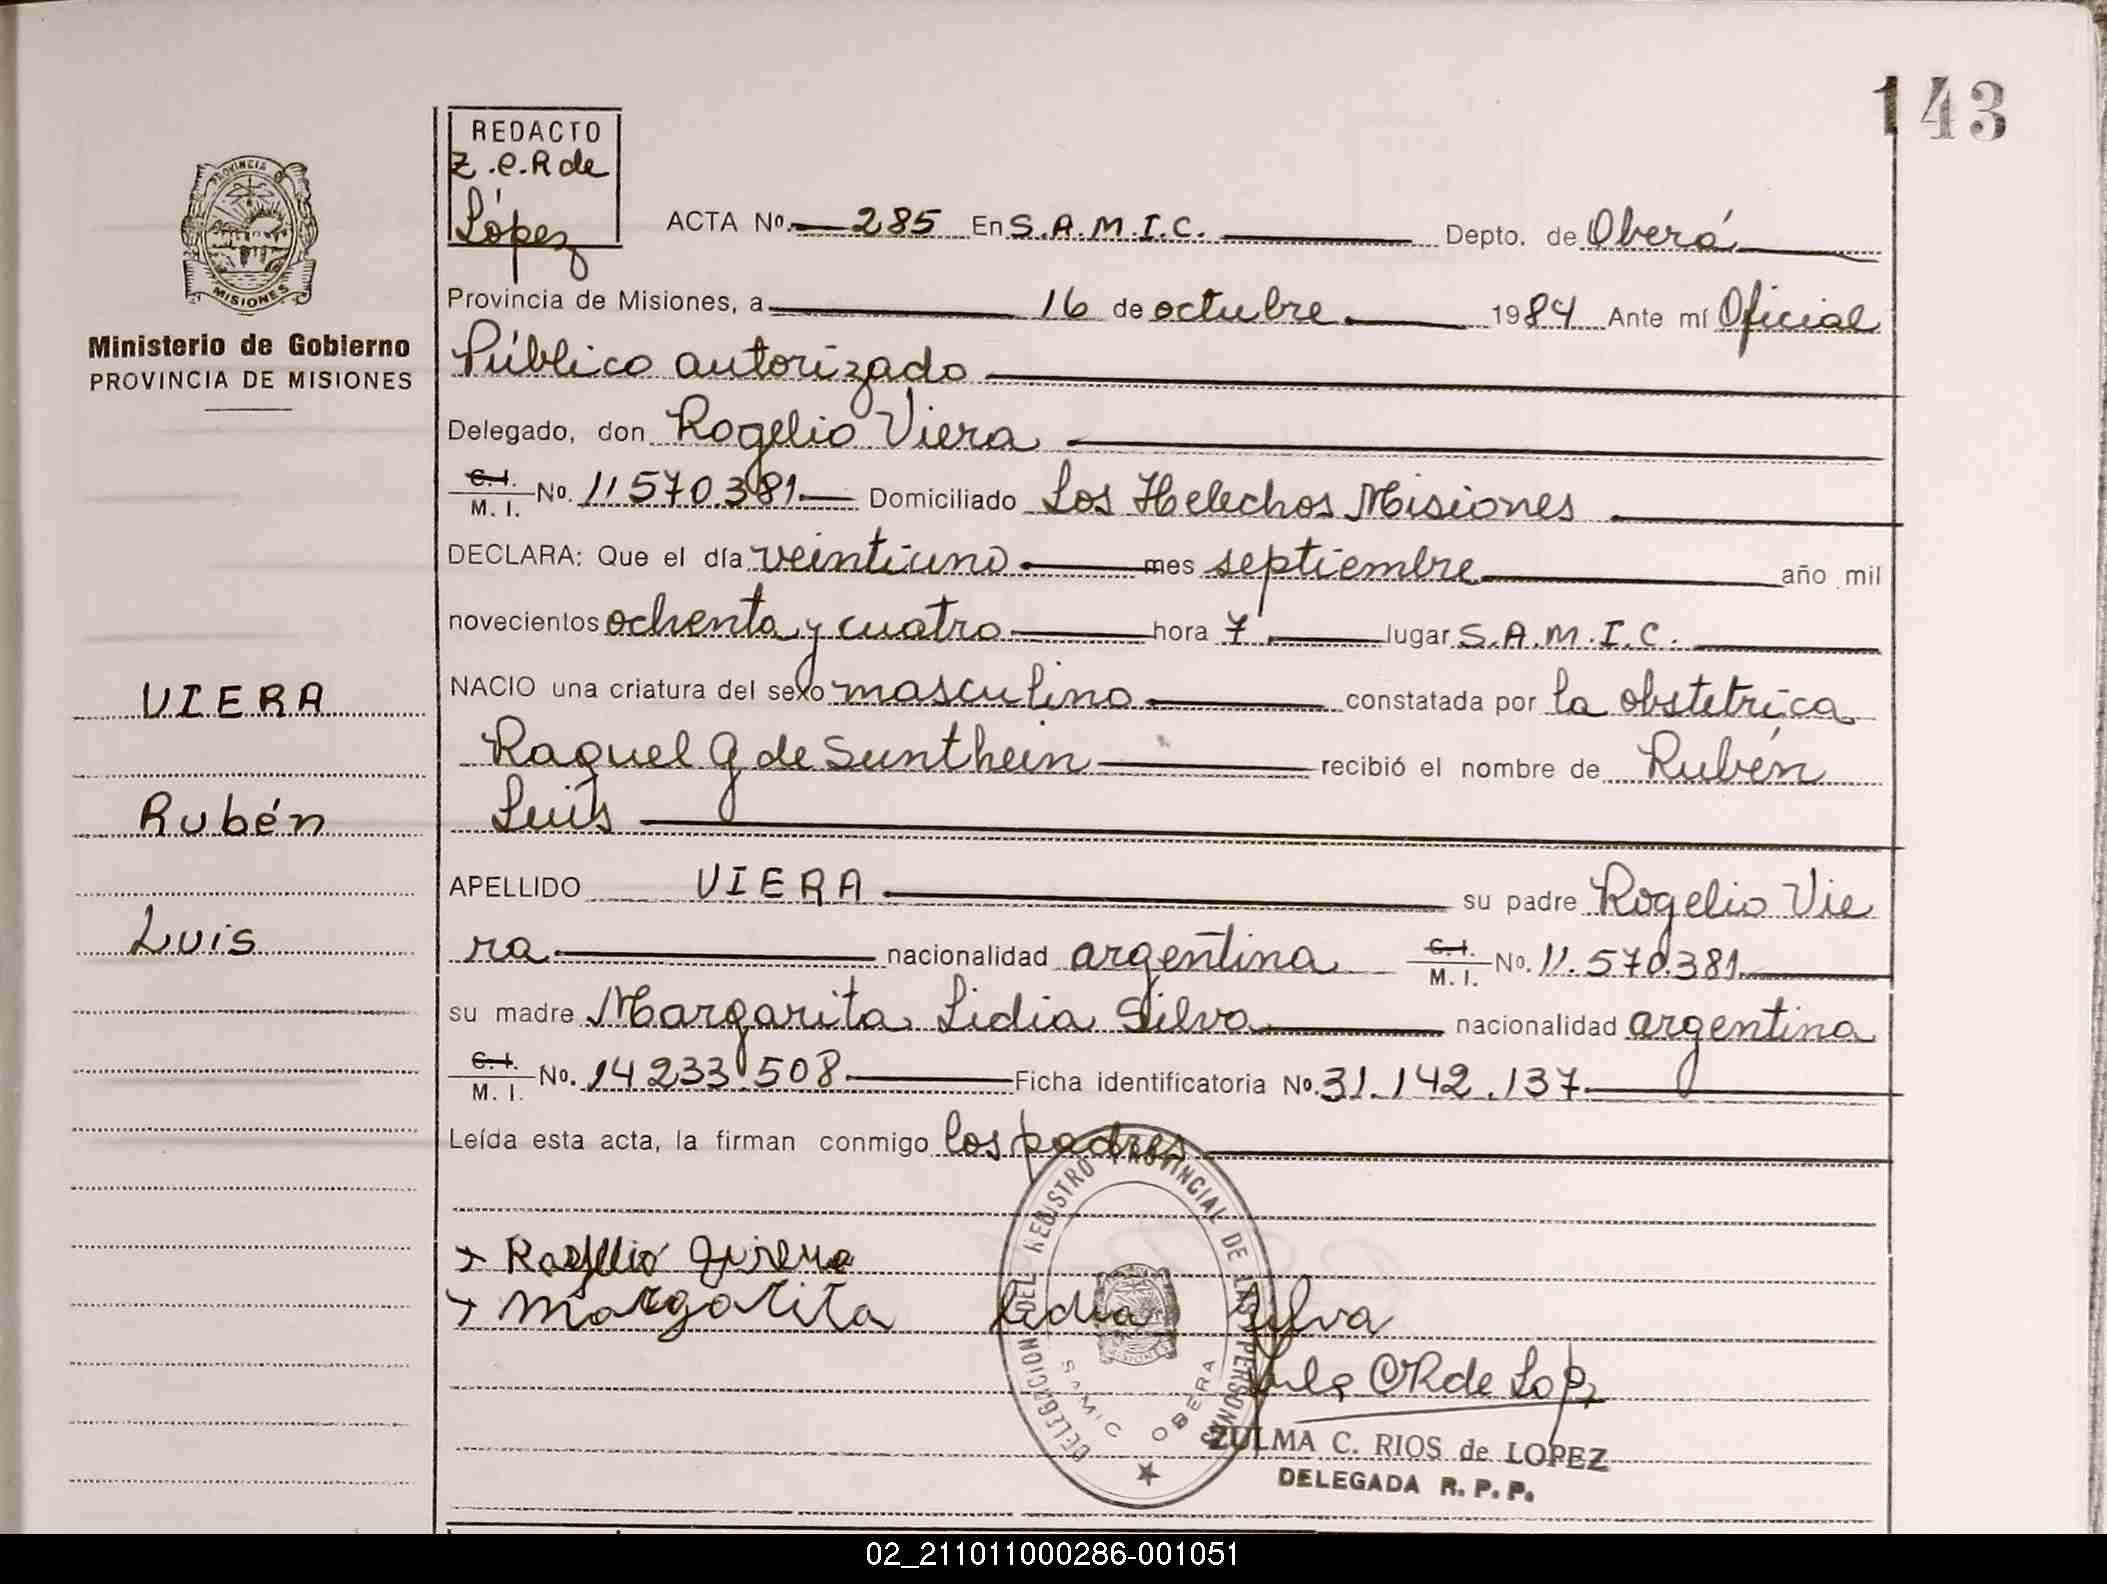 143
REDACTO
Z.C.R de
López
PROVINCIA D
MISIONES
Ministerio de Gobierno
PROVINCIA DE MISIONES
VIERA
Rubén
Luis
ACTA No. 285 En S.A.M.I.C. Depto. de Oberá
Provincia de Misiones, a 16 de octubre 1984 Ante mí Oficial
Público autorizado
Delegado, don Rogelio Viera
C.I. M.I. No. 11.570.381 Domiciliado Los Helechos Misiones
DECLARA: Que el día veintiuno mes septiembre año mil
novecientos ochenta y cuatro hora 7 lugar S.A.M.I.C.
NACIO una criatura del sexo masculino constatada por la obstetrica
Raquel G de Sunthein recibió el nombre de Rubén
Luis
APELLIDO VIERA su padre Rogelio Vie
ra nacionalidad argentina C.I. M.I. No. 11.570.381
su madre Margarita Lidia Silva nacionalidad argentina
C.I. M.I. No. 14.233.508 Ficha identificatoria No. 31.142.137
Leída esta acta, la firman conmigo los padres
DELEGACION DEL REGISTRO PROVINCIAL DE LAS PERSONAS
SAMIC OBERA
MISIONES
Margarita Lidia Silva
CR de Lopz
ZULMA C. RIOS de LOPEZ
DELEGADA R. P. P.
02_211011000286-001051